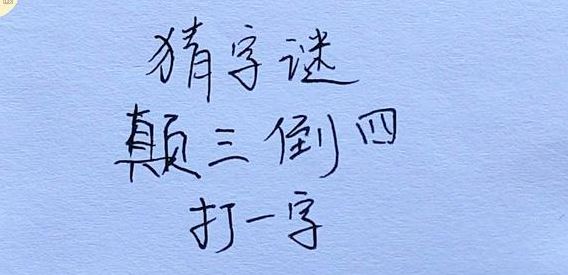 猜字谜
颠三倒四
打一字